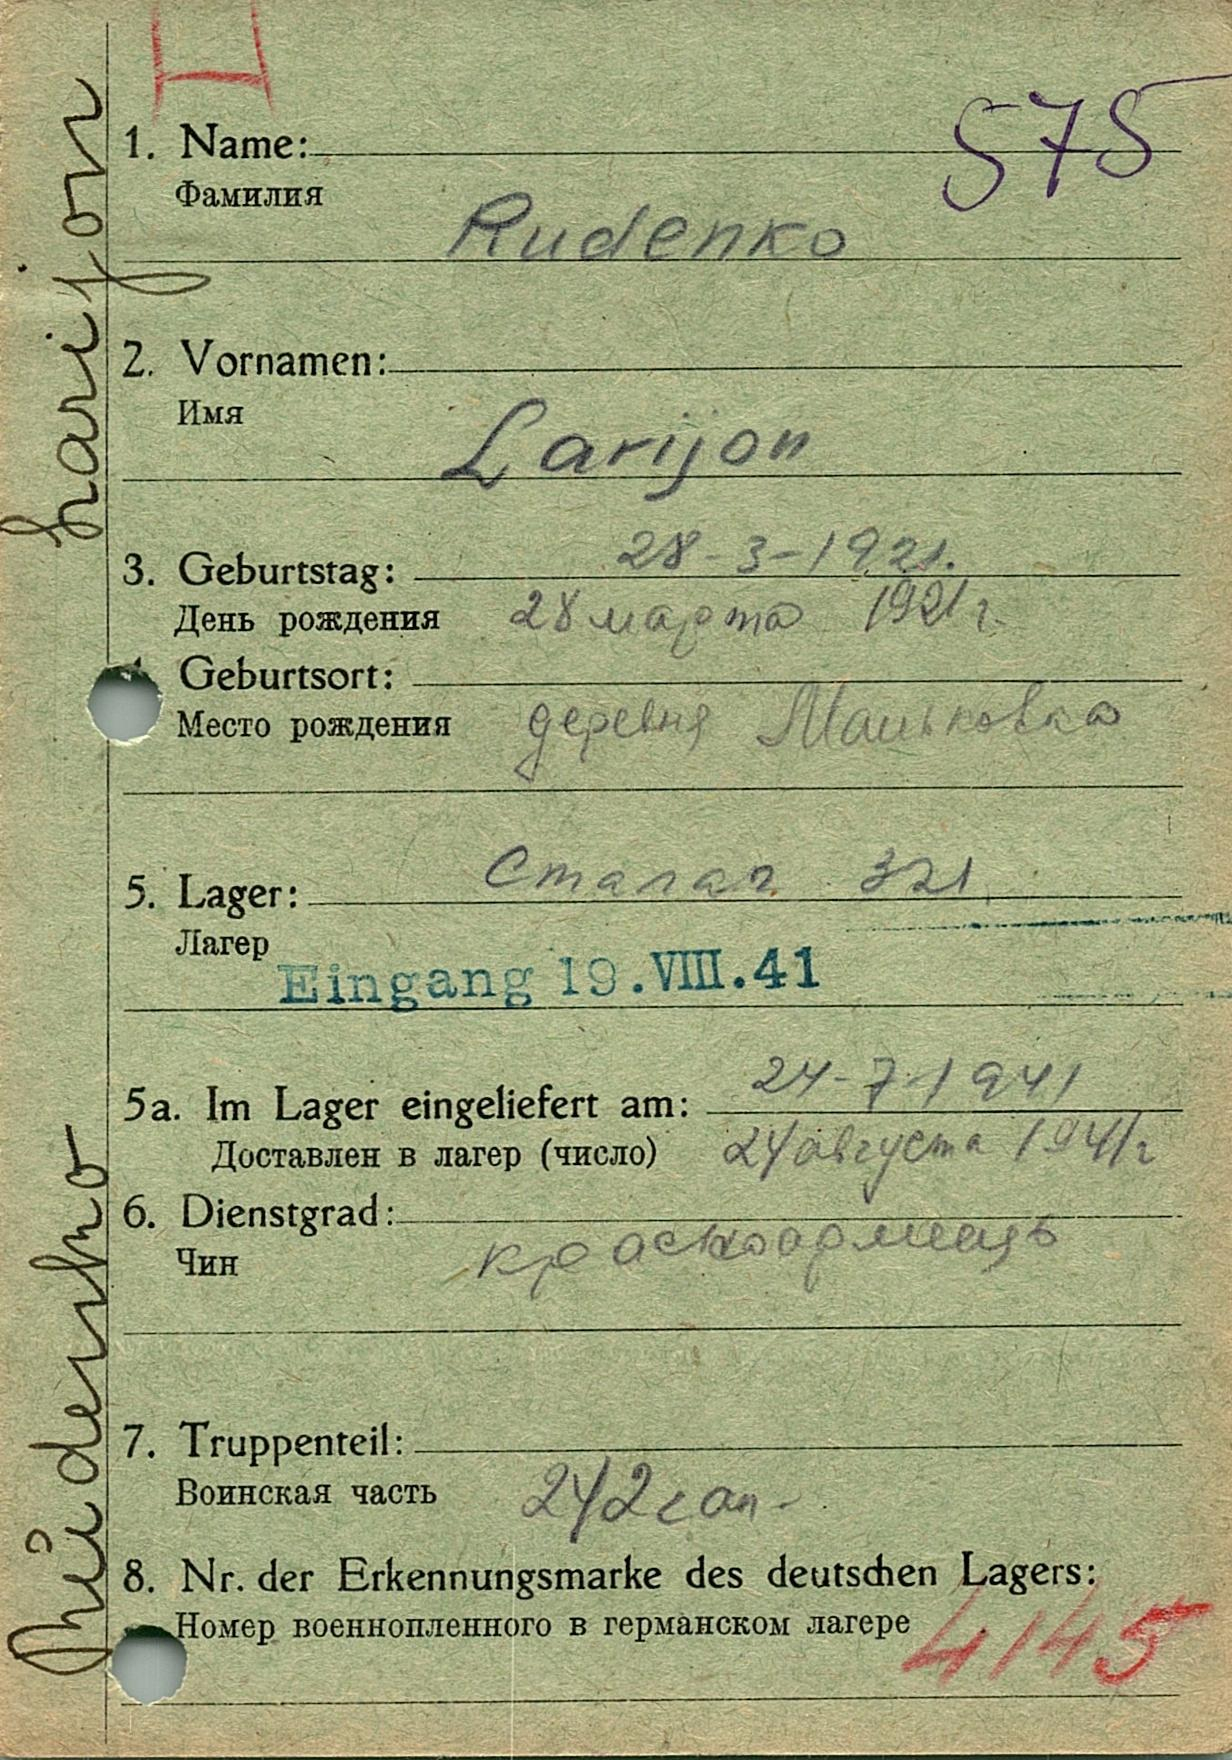 575
1. Name:
Фамилия
Rudenko
2. Vornamen:
Имя
Larijon
3. Geburtstag: 28-3-1921.
День рождения 28 марта 1921 г.
Geburtsort:
Место рождения деревня Маньковка
5. Lager: Сталаг 321
Лагер
Eingang 19.VIII.41
5a. Im Lager eingeliefert am: 24-7-1941
Доставлен в лагер (число) 24 августа 1941 г
6. Dienstgrad:
Чин красноармеець
7. Truppenteil:
Воинская часть 242 сап-
8. Nr. der Erkennungsmarke des deutschen Lagers:
Номер военнопленного в германском лагере 4145
Rudenko Larijon